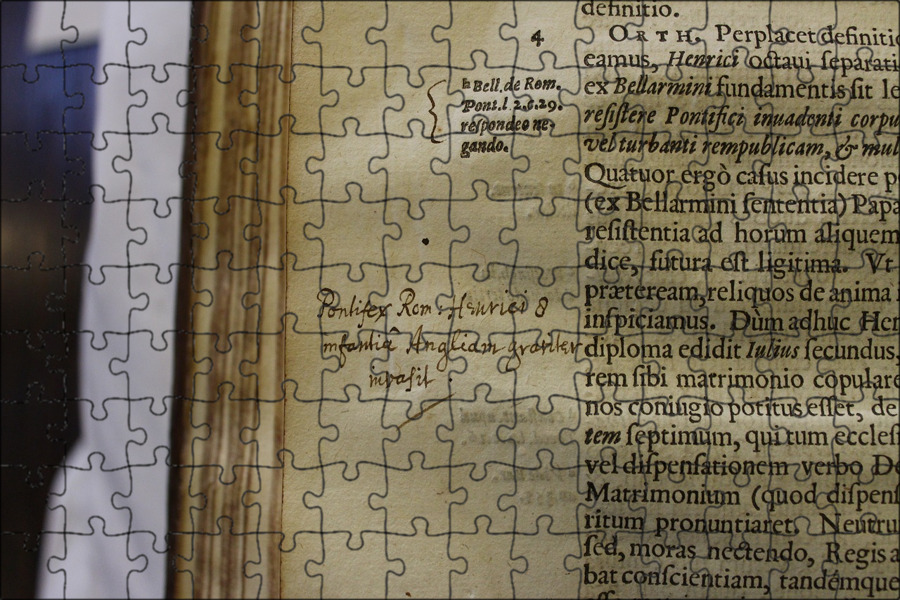 definitio.
4
ORTH. Perplacet definitio
eamus, Henrici octaui separati
ex Bellarmini fundamentis sit le
resistere Pontifici inuadenti corpu
vel turbanti rempublicam, & mul
Quatuor ergò casus incidere p
(ex Bellarmini sententia) Papa
resistentia ad horum aliquem
dice, futura est ligitima. Vt
præteream, reliquos de anima
inspiciamus. Dùm adhuc Hen
diploma edidit Iulius secundus,
rem sibi matrimonio copulare
nos coniugio potitus esset, de
tem septimum, qui tum eccles
vel dispensationem verbo De
Matrimonium (quod dispens
ritum pronuntiaret. Neutru
sed, moras nectendo, Regis a
bat conscientiam, tandémque
b Bell. de Rom.
Pont. l. 2. c. 29.
respondeo ne-
gando.
Pontifex Rom: Henrici 8
Angliam graviter